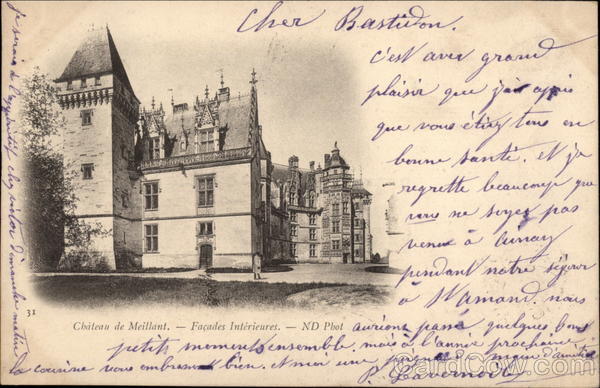 Cher Bastidon.
c'est avec grand
plaisir que j'ai appris
que vous étiez tous en
bonne santé. et je
regrette beaucoup que
vous ne soyez pas
venu à Aunay
pendant notre séjour
à St amand. nous
aurions passé quelques bons
petits moments ensemble, mais à l'année prochaine
la cousine vous embrassent bien. et moi une poignée de main d'amitié
P. Lavernoix
je serais de
chez
Dimanche matin
31
Château de Meillant. — Façades Intérieures. — ND Phot
CardCow.com